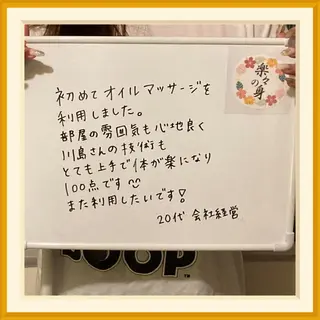 楽々の身
初めてオイルマッサージを
利用しました。
部屋の雰囲気も心地良く
川島さんの技術も
とても上手で体が楽になり
100点です
また利用したいです!
20代 会社経営
OOP